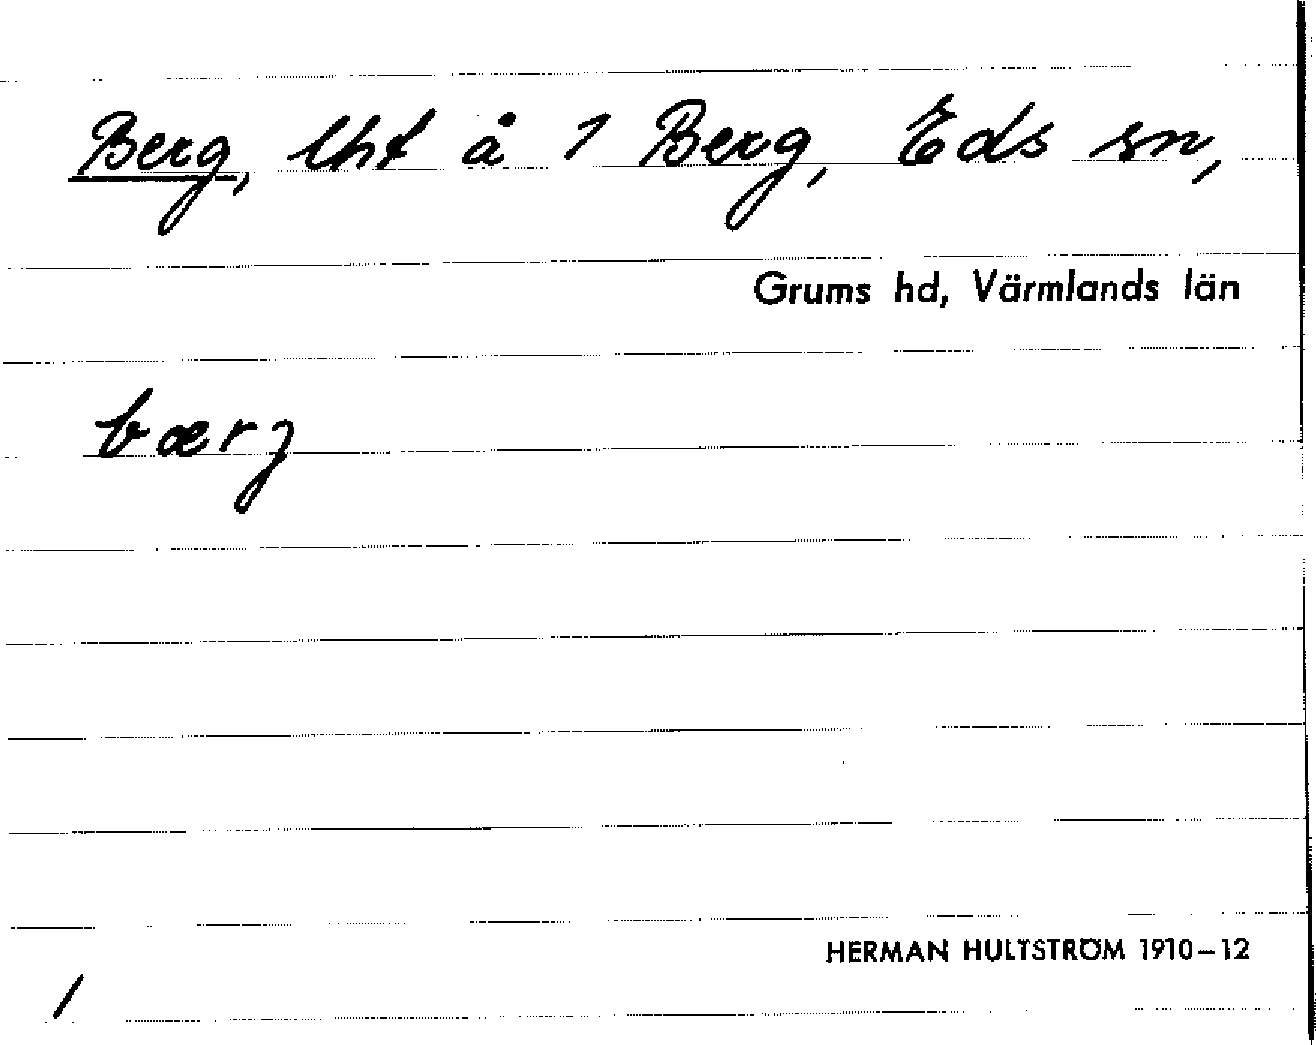 Berg, lht å 1 Berg, Eds sn,
Grums hd, Värmlands län
bærj
HERMAN HULTSTRÖM 1910–12
/